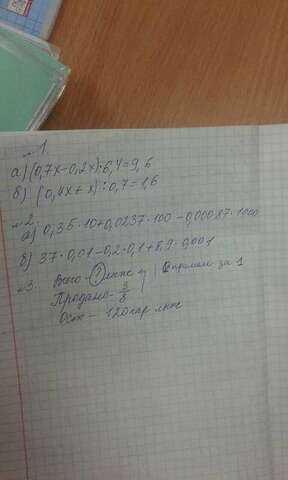 №1.
а) (0,7х-0,2х):6,4=9,6
б) (0,4х+х):0,7=1,6
№2.
а) 0,35·10+0,0237·100-0,00087·1000
б) 37·0,01-0,2·0,1+8,9·0,001
№3. Всего - ? лыж примем за 1
Продано - 3/8
Ост - 120 пар лыж